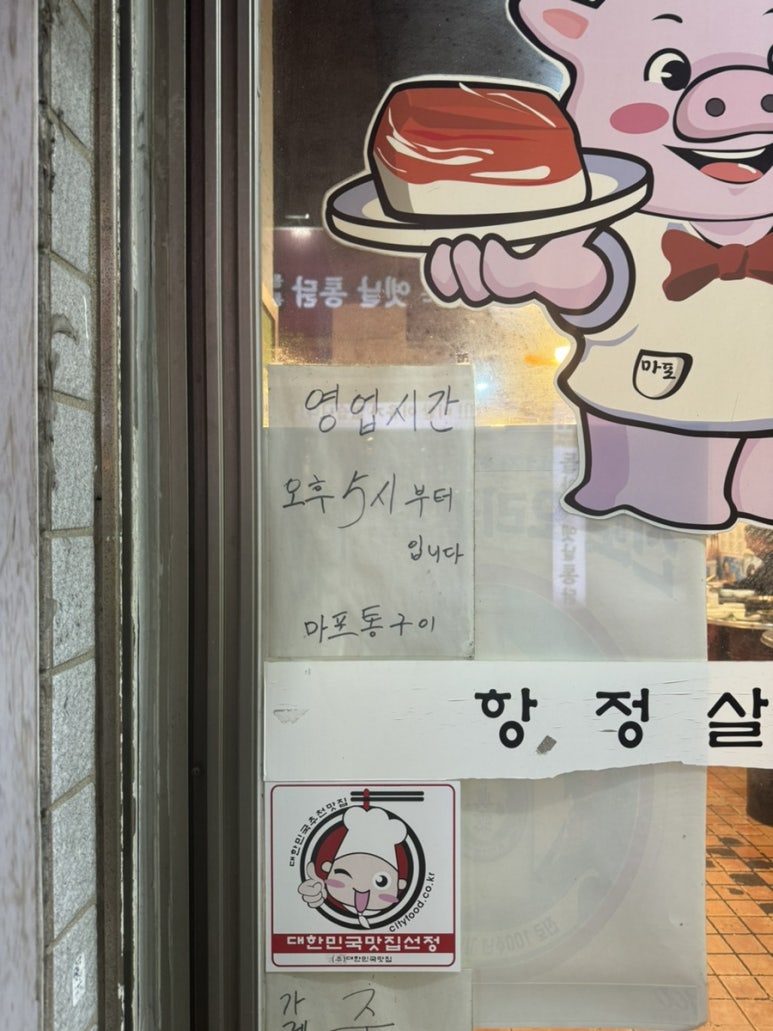 마포
영업시간
오후 5시부터
입니다
마포통구이
항정살
대한민국추천맛집
cityfood.co.kr
대한민국맛집선정
(주)대한민국맛집